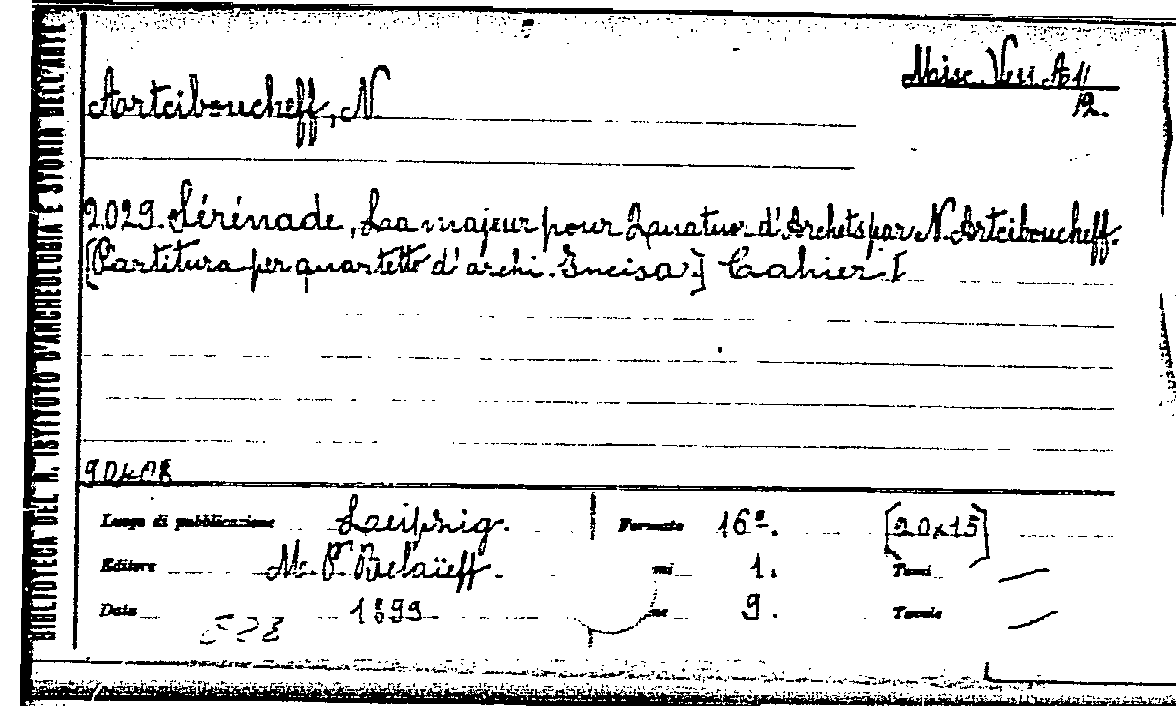 BIBLIOTECA DEL R. ISTITUTO D'ARCHEOLOGIA E STORIA DELL'ARTE
Misc. Ven. A 11/
12.
Artciboucheff, N.
2.029. Sérénade, La majeur pour Quatuor d'Archets par N. Artciboucheff.
[Partitura per quartetto d'archi. Incisa.] Cahier I
90408
Luogo di pubblicazione Leipzig. Formato 16º. [20x15]
Editore M. P. Belaïeff. 1. Tomi
Data 1899 9. Tavole